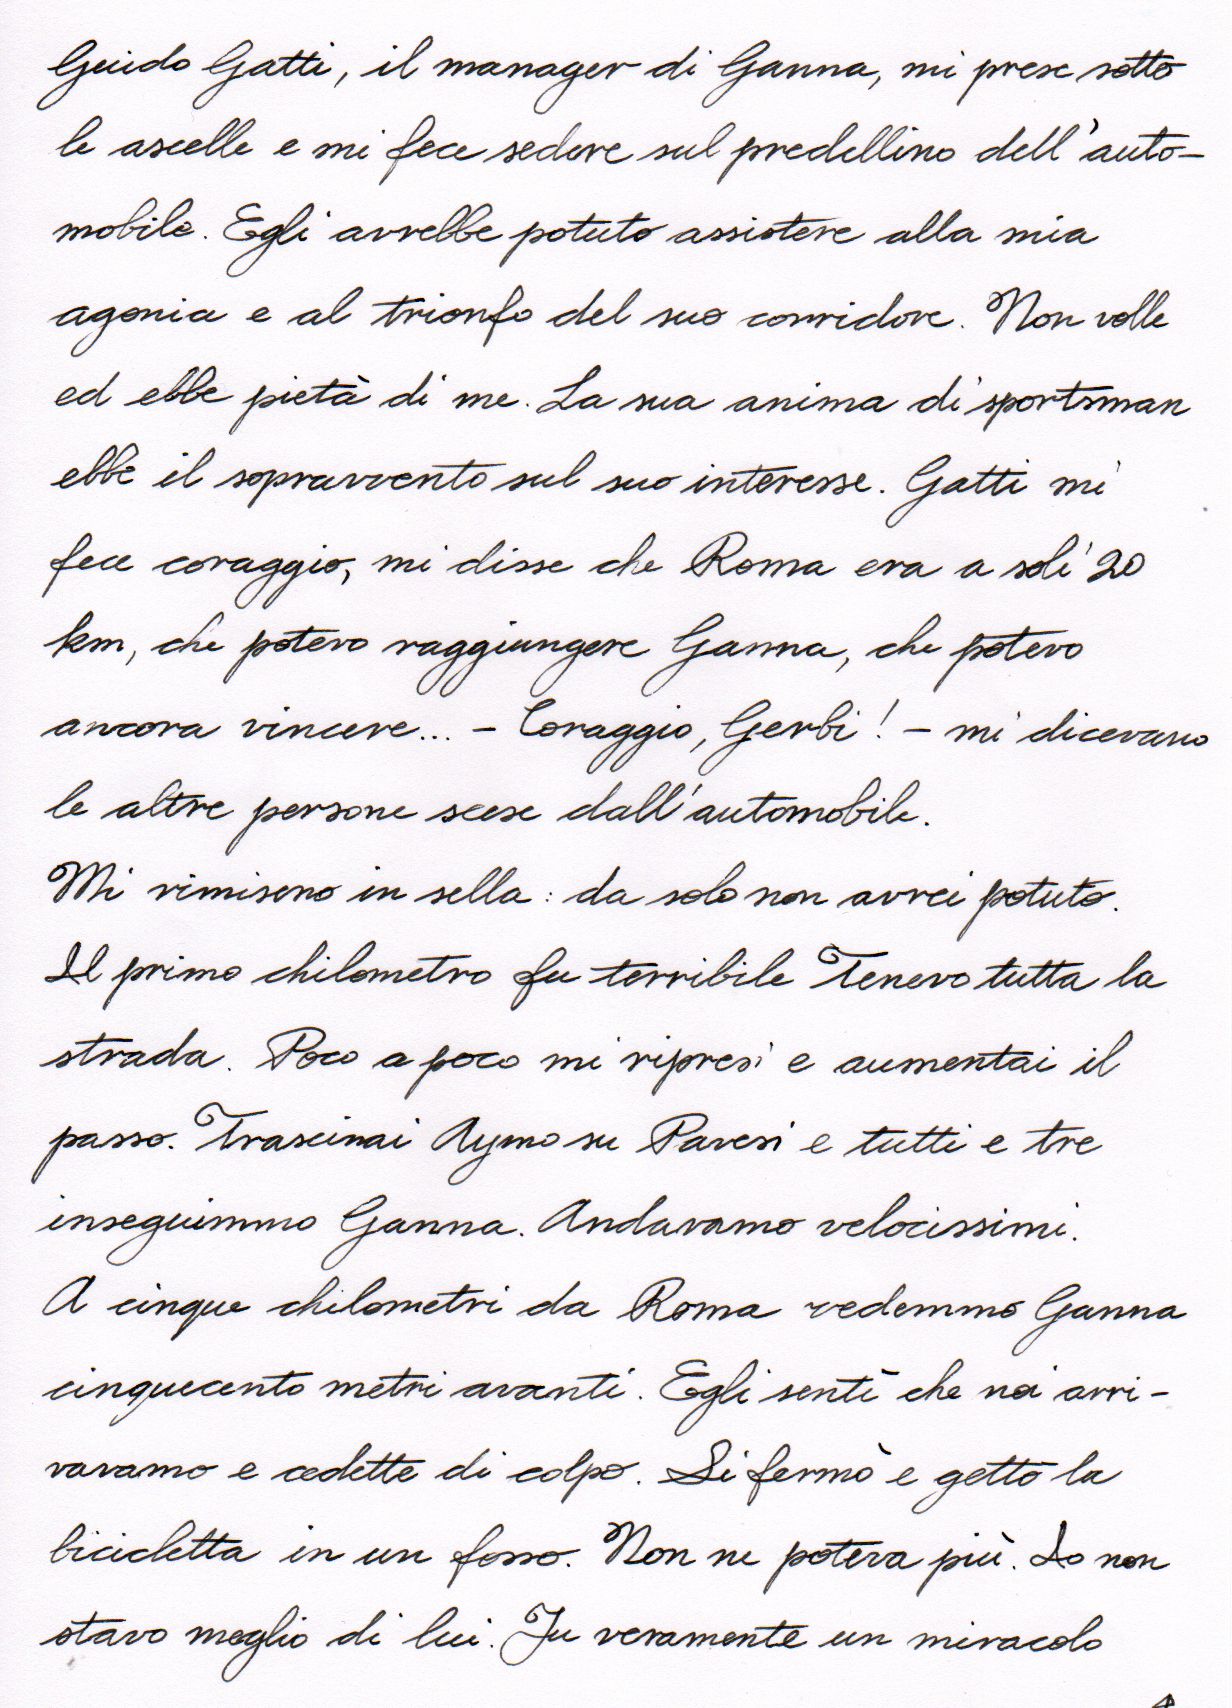 Guido Gatti, il manager di Ganna, mi prese sotto
le ascelle e mi fece sedere sul predellino dell'auto-
mobile. Egli avrebbe potuto assistere alla mia
agonia e al trionfo del suo corridore. Non volle
ed ebbe pietà di me. La sua anima di sportsman
ebbe il sopravvento sul suo interesse. Gatti mi
fece coraggio, mi disse che Roma era a soli 20
km, che potevo raggiungere Ganna, che potevo
ancora vincere... - Coraggio, Gerbi! - mi dicevano
le altre persone scese dall'automobile.
Mi rimisero in sella: da solo non avrei potuto.
Il primo chilometro fu terribile Tenevo tutta la
strada. Poco a poco mi ripresi e aumentai il
passo. Trascinai Aymo su Pavesi e tutti e tre
inseguimmo Ganna. Andavamo velocissimi.
A cinque chilometri da Roma vedemmo Ganna
cinquecento metri avanti. Egli sentì che noi arri-
vavamo e cedette di colpo. Si fermò e gettò la
bicicletta in un fosso. Non ne poteva più. Io non
stavo meglio di lui. Fu veramente un miracolo